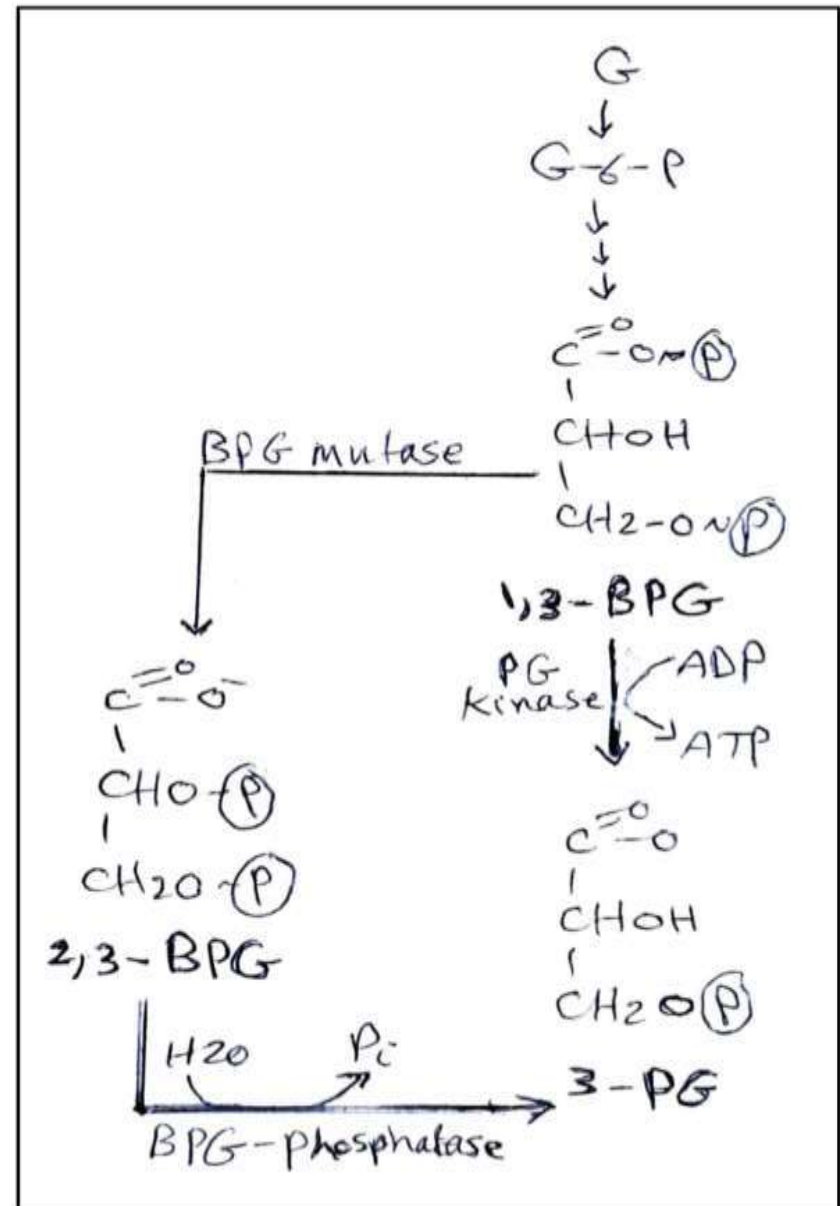 G
G-6-P
C=O -O~P
CHOH
CH2-O~P
1,3-BPG
BPG mutase
PG
Kinase
ADP
ATP
C=O -O⁻
CHO-P
CH2O-P
2,3-BPG
C=O -O
CHOH
CH2OP
3-PG
H2O
Pi
BPG-phosphatase